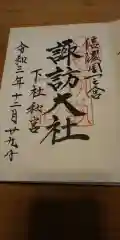 信濃國一之宮
諏訪大社
下社秋宮
令和三年十二月廿九日